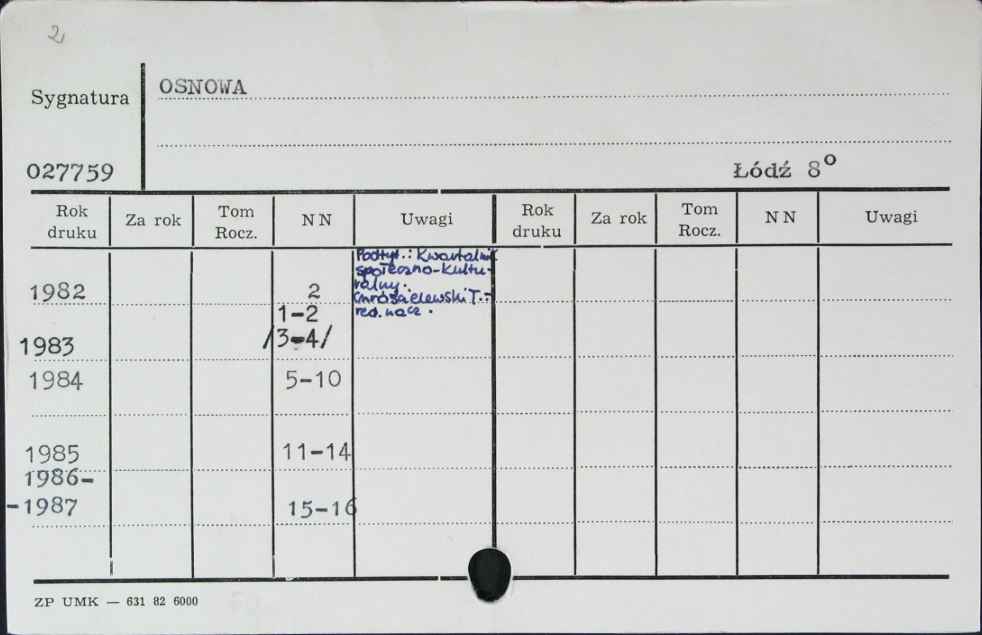 2
OSNOWA
Sygnatura
027759
Łódź 8°
Rok druku Za rok Tom Rocz. NN Uwagi Rok druku Za rok Tom Rocz. NN Uwagi
Podtyt.: Kwartalnik
społeczno-kultu-
ralny.
1982 2
red. nacz.
1-2
1983 /3-4/
1984 5-10
1985 11-14
1986-
-1987 15-16
ZP UMK — 631 82 6000